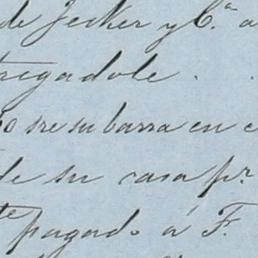 de Jecker y C.ª a
tregadole . .
su barra en c
de su casa pr.
pagado á F.